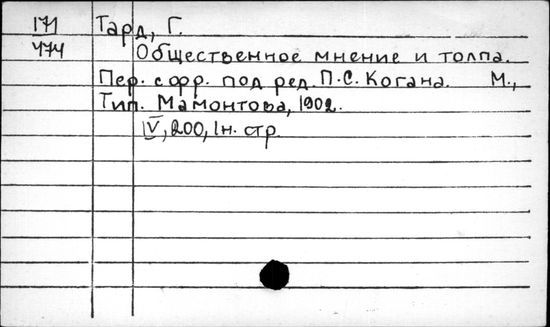 171 Тард, Г.
474 Общественное мнение и толпа.
Пер. с фр. под ред. П.С. Когана. М.,
Тип. Мамонтова, 1902.
IV, 200, 1 н. стр.